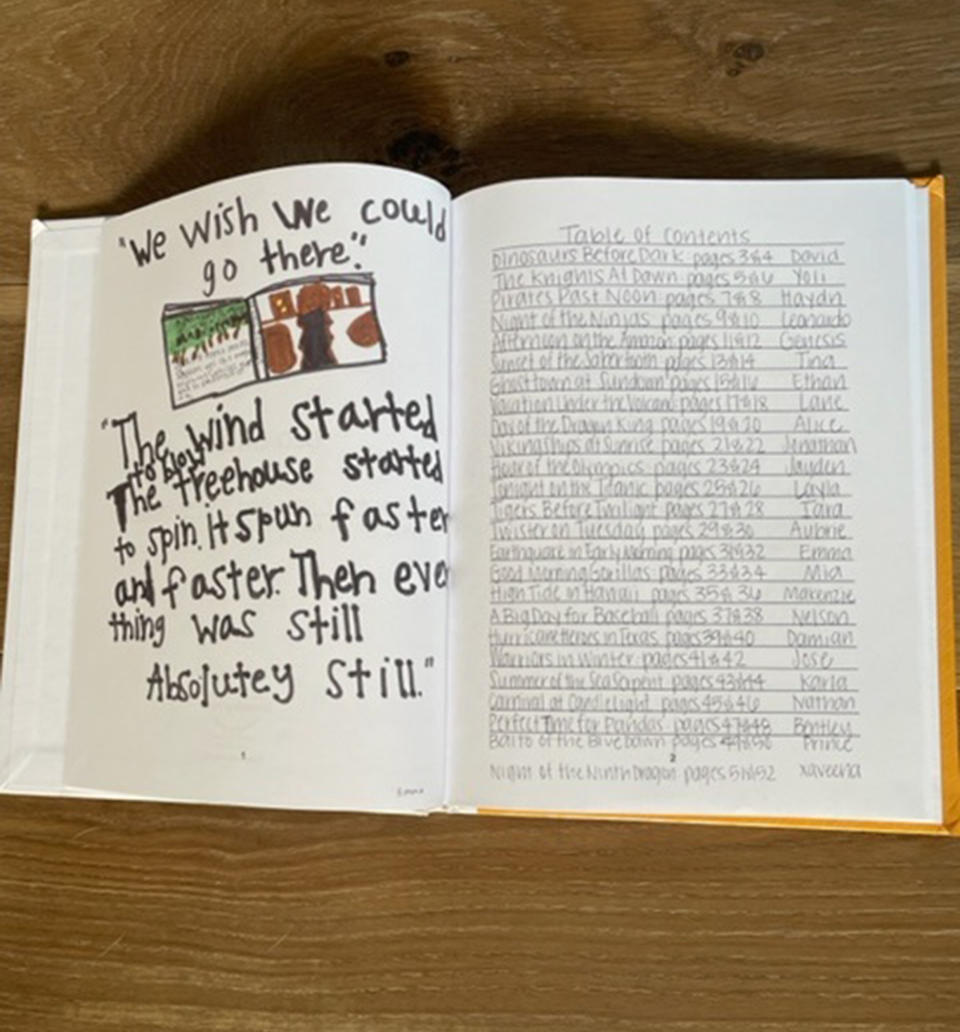 "We wish we could
go there".
"The wind started
to blow
The treehouse started
to spin. it spun faster
and faster. Then eve
thing was still
Absolutey still."
1
Emma
Table of Contents
Dinosaurs Before Dark pages 3&4 David
The Knights At Dawn pages 5&6 Yoli
Pirates Past Noon pages 7&8 Haydn
Night of the Ninjas pages 9&10 Leonardo
Afternoon on the Amazon pages 11&12 Genesis
Sunset of the Sabertooth pages 13&14 Tina
Ghost town at Sundown pages 15&16 Ethan
Vacation Under the Volcano pages 17&18 Lane
Day of the Dragon King pages 19&20 Alice
Viking Ships at Sunrise pages 21&22 Jonathan
Hour of the Olympics pages 23&24 Jayden
Tonight on the Titanic pages 25&26 Layla
Tigers Before Twilight pages 27&28 Tara
Twister on Tuesday pages 29&30 Aubrie
Earthquake in Early Morning pages 31&32 Emma
Good Morning Gorillas pages 33&34 Mia
High Tide in Hawaii pages 35&36 Makenzie
A Big Day for Baseball pages 37&38 Nelson
Hurricane Heroes in Texas pages 39&40 Damian
Warriors in Winter pages 41&42 Jose
Summer of the Sea Serpent pages 43&44 Karla
Carnival at Candlelight pages 45&46 Nathan
Perfect Time for Pandas pages 47&48 Bentley
Balto of the Blue Dawn pages 49&50 Prince
2
Night of the Ninth Dragon pages 51&52 Xaveena